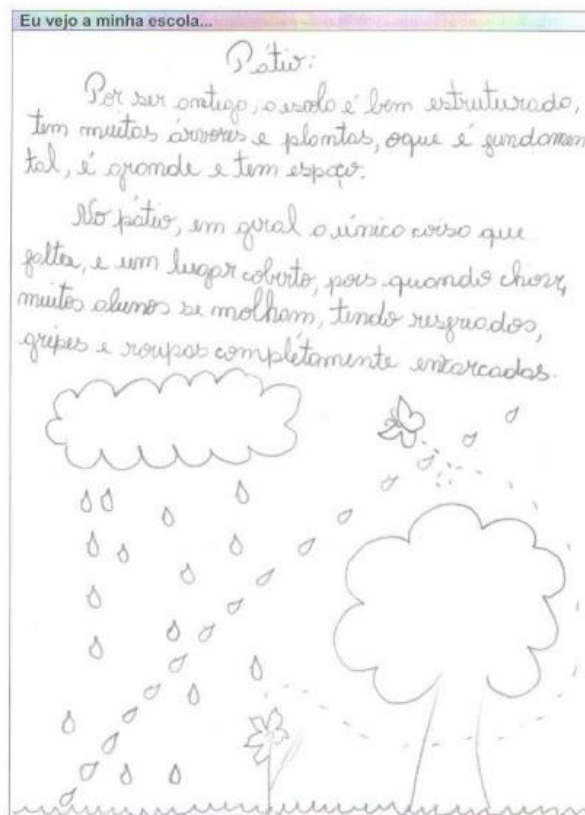 Eu vejo a minha escola...
Pátio:
Por ser antigo, a escola é bem estruturado,
tem muitas árvores e plantas, oque é fundamen
tal, é grande e tem espaço.
No pátio, em geral a única coisa que
faltea, e um lugar coberto, pois quando chove,
muitos alunos se molham, tendo resfriados,
gripes e roupas completamente encarcadas.